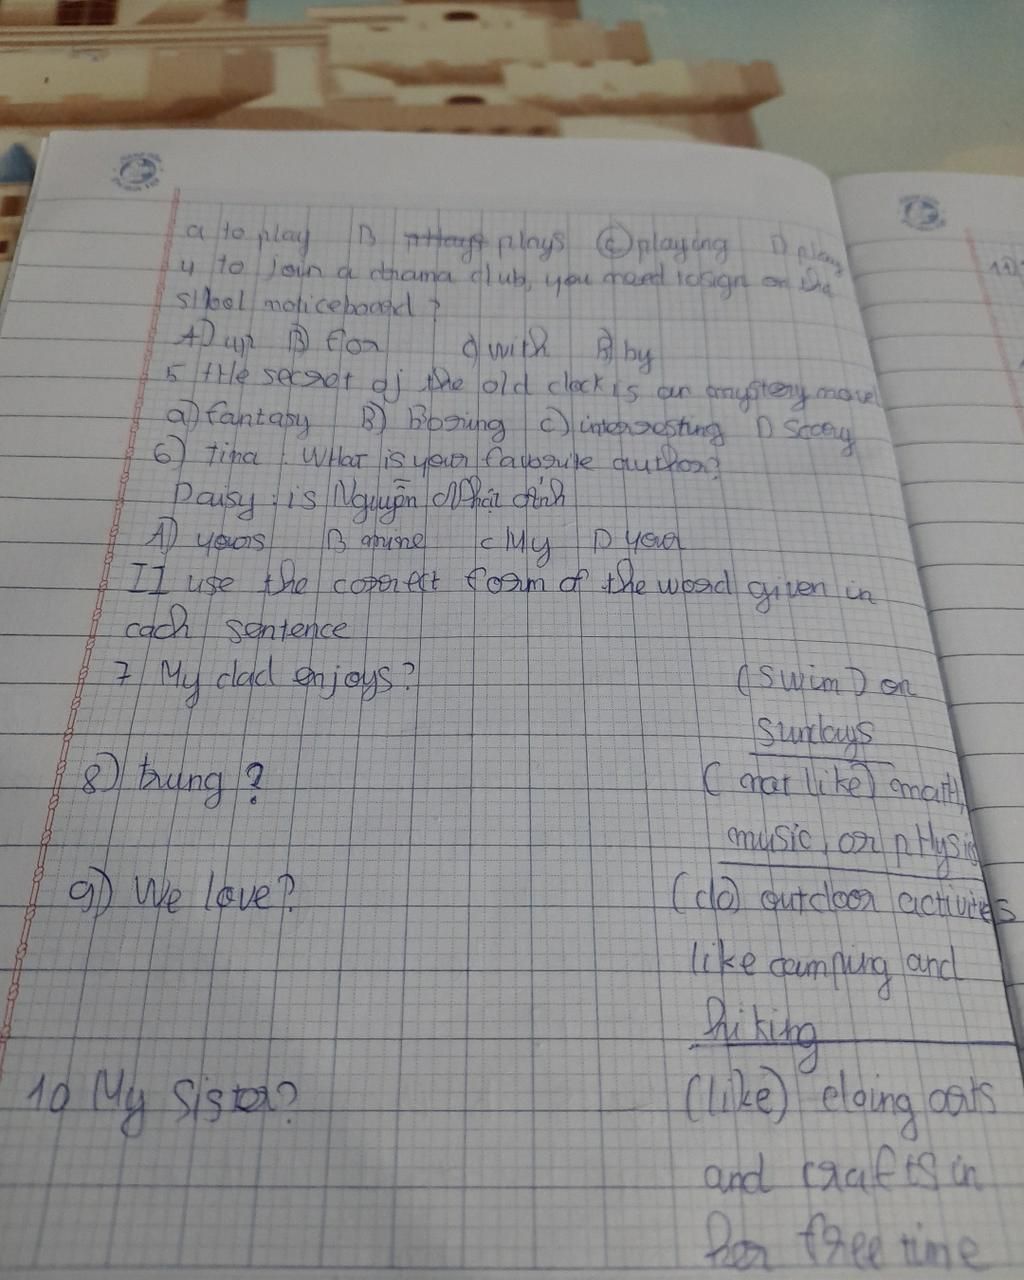 a to play B plays C playing D play
4 to join a drama club, you need to sign on the
shool noticeboard?
A) up B) for c) with B) by
5 tHe secret of the old clock is an mystery novel
a) fantasy B) Bosing c) interosting D Scory
6) tina : WHat is your favorite author?
Daisy : is Nguyễn Nhật Ánh
A) yours B mine c My D your
II use the correct form of the word given in
each sentence
7 My dad enjoys? (swim) on
sundays
8) trung ? ( not like) math,
music, or pHysis
9) We love? (do) outdoor activities
like camping and
hiking
10 My Sister? (like) doing arts
and crafts in
her free time